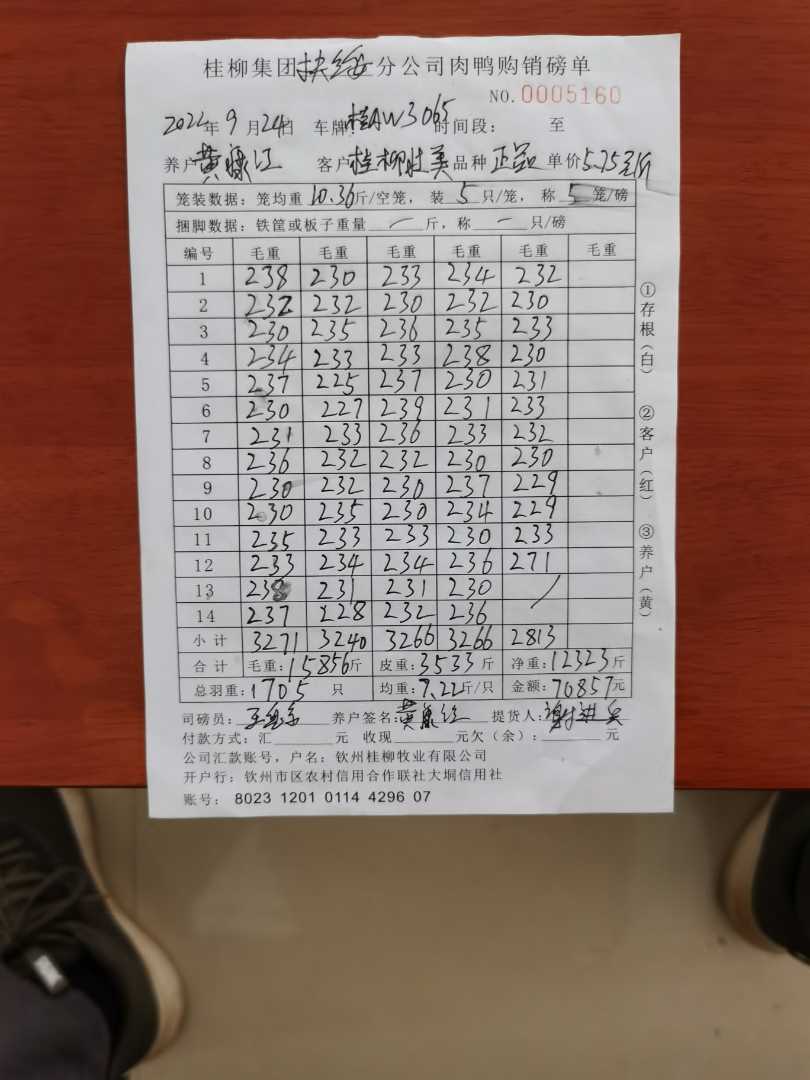 桂柳集团扶绥分公司肉鸭购销磅单
NO.0005160
2022年9月24日 车牌:桂AW3065 时间段: 至
养户 黄康江 客户 桂柳牧美 品种 正品 单价5.75元/斤
笼装数据:笼均重10.36斤/空笼,装5只/笼,称5笼/磅
捆脚数据:铁筐或板子重量 — 斤,称 — 只/磅
编号 毛重 毛重 毛重 毛重 毛重 毛重
1 238 230 233 234 232
2 232 232 230 232 230
3 230 235 236 235 233
4 234 233 233 238 230
5 237 225 237 230 231
6 230 227 239 231 233
7 231 233 236 233 232
8 236 232 232 230 230
9 230 232 230 237 229
10 230 235 230 234 229
11 235 233 233 230 233
12 233 234 234 236 271
13 238 231 231 230 /
14 237 228 232 236
小计 3271 3240 3266 3266 2813
合计 毛重:15856斤 皮重:3533斤 净重:12323斤
总羽重:1705只 均重:7.22斤/只 金额:70857元
司磅员: 养户签名:黄康江 提货人:
付款方式:汇 元 收现 元欠(余): 元
公司汇款账号,户名:钦州桂柳牧业有限公司
开户行:钦州市区农村信用合作联社大垌信用社
账号:8023 1201 0114 4296 07
①存根(白) ②客户(红) ③养户(黄)